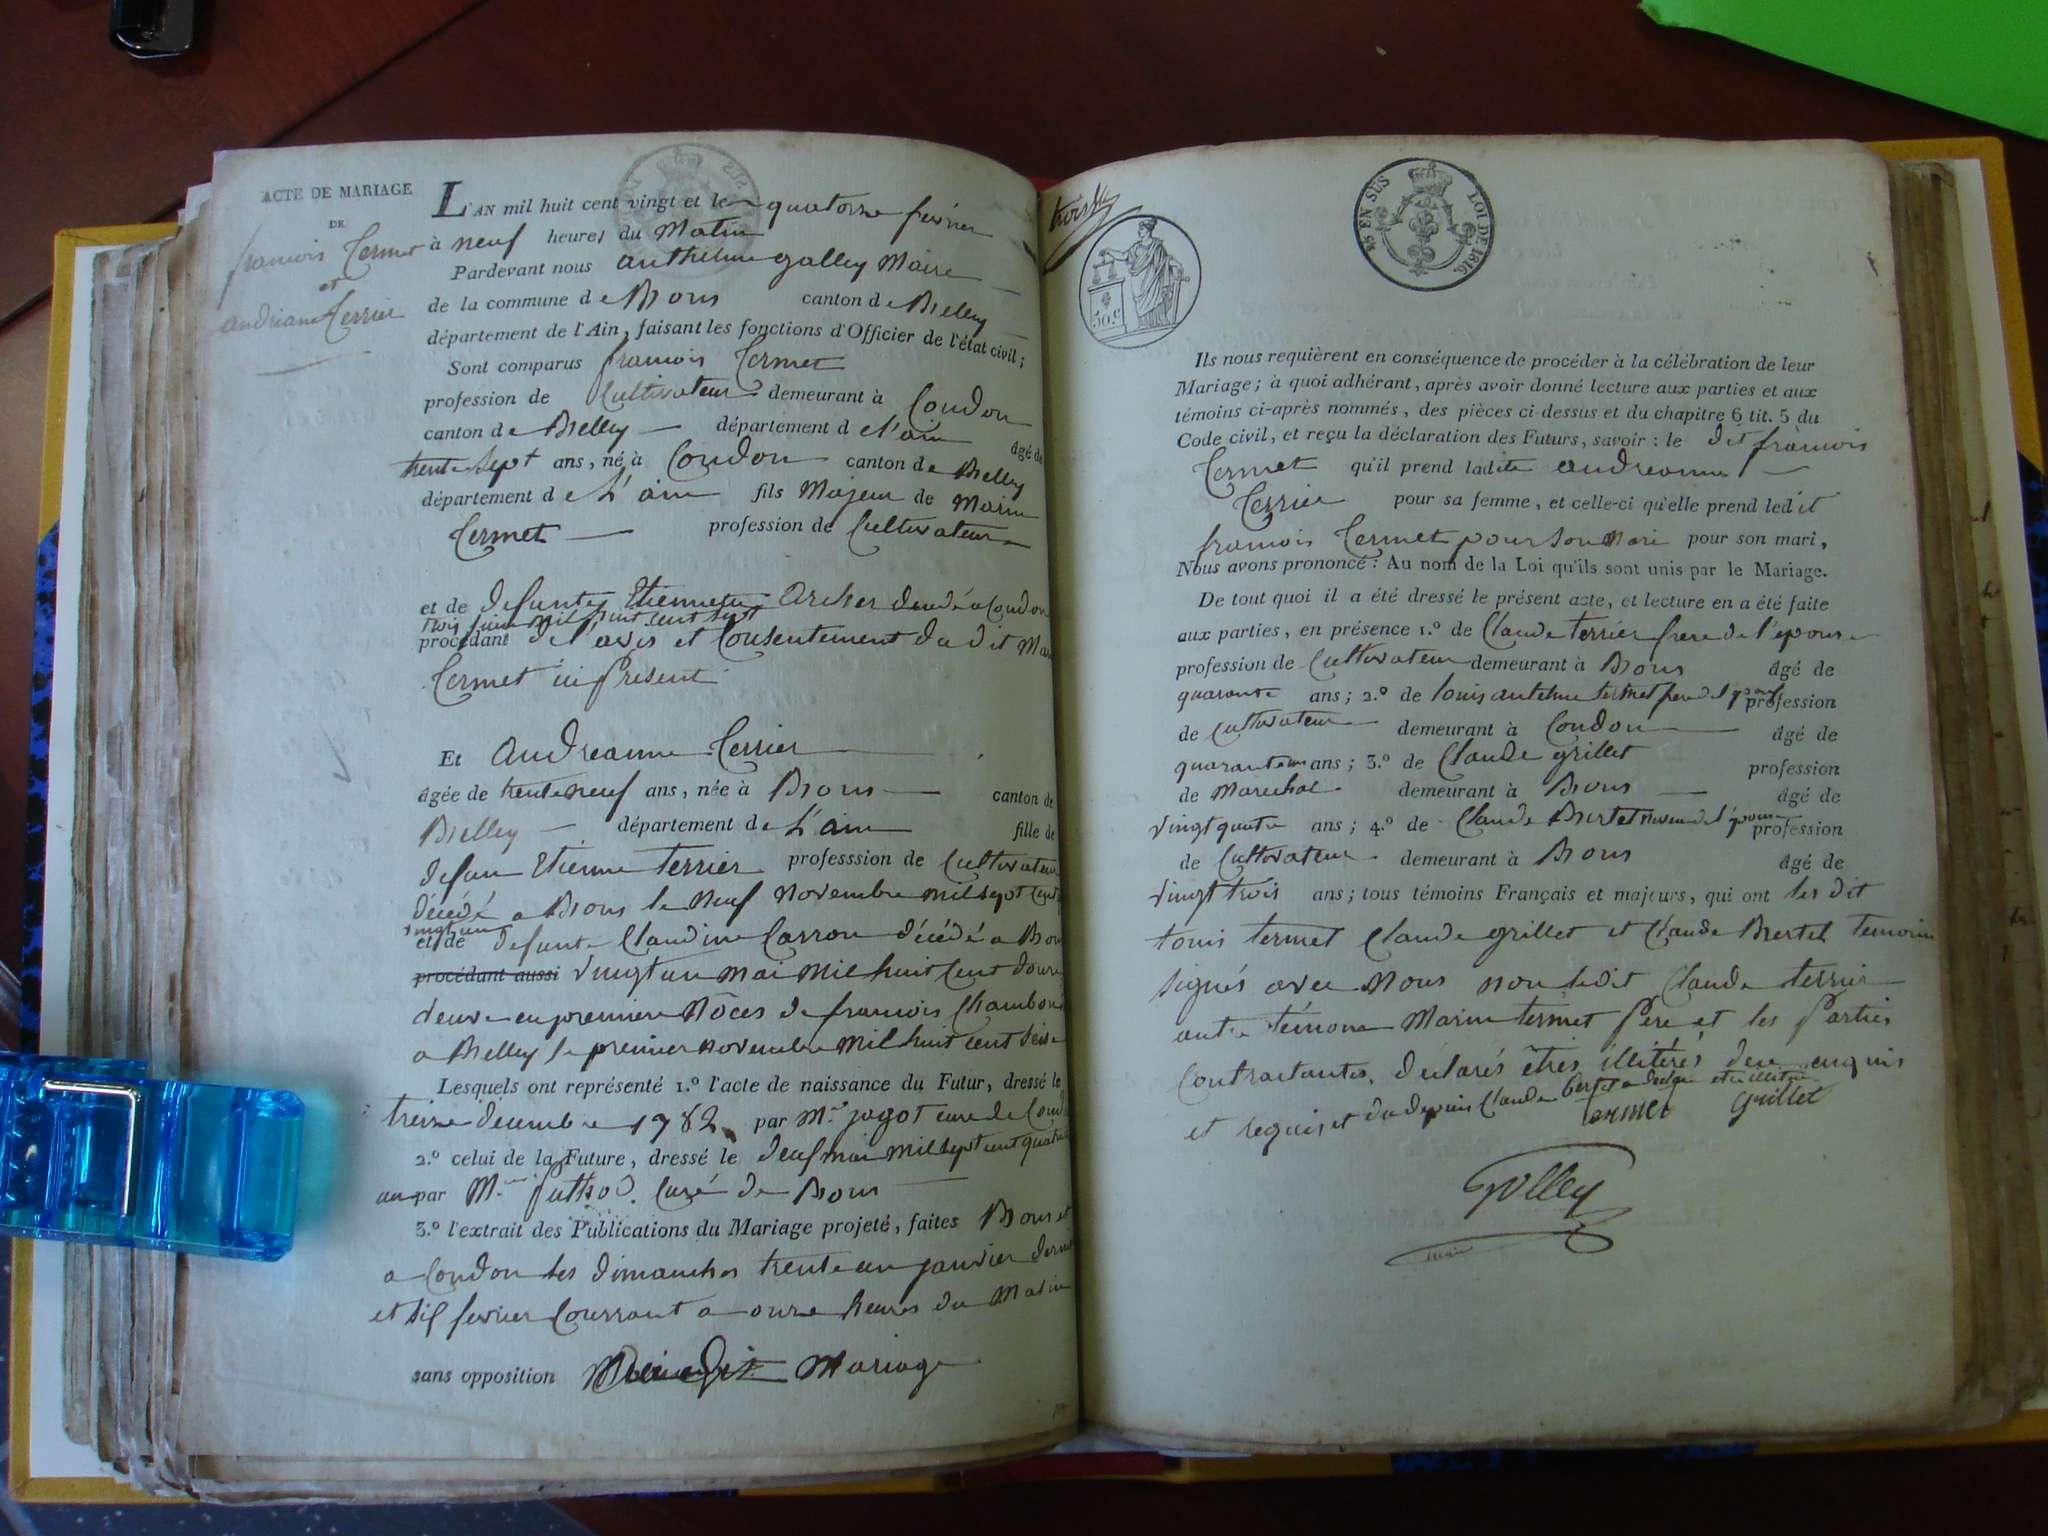 ACTE DE MARIAGE
DE
francois Termet
et
andrianne Terrier
L'AN mil huit cent vingt et le quatorze fevrier
à neuf heures du Matin
Pardevant nous anthelme golley Maire
de la commune de Bons canton de Belley
département de l'Ain, faisant les fonctions d'Officier de l'état civil;
Sont comparus francois Termet
profession de Cultivateur demeurant à Condon
canton de Belley département de l'ain âgé de
trente sept ans, né à Condon canton de Belley
département de L'ain fils Majeur de Marin
Termet profession de Cultivateur
et de defunte Etiennette décédé a Condon
trois juin mil huit cent sept
procédant de l'avis et Consentement du dit Marin
Termet ici présent
Et Andreanne Terrier
âgée de trente neuf ans, née à Bons canton de
Belley département de L'ain fille de
defun Etienne Terrier professsion de Cultivateur
décédé a Bons le Neuf Novembre mil sept cent
vingt un
et de defunte Claudine Carron décédé a Bons
procédant aussi vingt un mai mil huit cent douze
veuve en premiere Nôces de francois Chambon
a Belley le premier novembre mil huit cent
Lesquels ont représenté 1.º l'acte de naissance du Futur, dressé le
treize decembre 1782 par Mr. jagot cure de Condon
2.º celui de la Future, dressé le neuf mai mil sept cent quatre
un par Mr. Curé de Bons
3.º l'extrait des Publications du Mariage projeté, faites Bons et
a Condon les dimanches trente un janvier dernier
et six fevrier Courrant a onze heures du Matin
sans opposition Mariage
50 c.
25 EN SUS LOI DE 1816.
Ils nous requièrent en conséquence de procéder à la célébration de leur
Mariage; à quoi adhérant, après avoir donné lecture aux parties et aux
témoins ci-après nommés, des pièces ci-dessus et du chapitre 6 tit. 5 du
Code civil, et reçu la déclaration des Futurs, savoir: le dit francois
Termet qu'il prend ladite andreanne
Terrier pour sa femme, et celle-ci qu'elle prend ledit
francois Termet pour son mari pour son mari,
Nous avons prononcé: Au nom de la Loi qu'ils sont unis par le Mariage.
De tout quoi il a été dressé le présent acte, et lecture en a été faite
aux parties, en présence 1.º de Claude terrier frere de l'epouse
profession de Cultivateur demeurant à Bons âgé de
quarante ans; 2.º de louis antelme termet frere de l'epoux profession
de Cultivateur demeurant à Condon âgé de
quarante un ans; 3.º de Claude grillet profession
de Marechal demeurant à Bons âgé de
vingt quatre ans; 4.º de Claude Bertet neveu de l'epouse profession
de Cultivateur demeurant à Bons âgé de
vingt trois ans; tous témoins Français et majeurs, qui ont les dit
louis termet Claude grillet et Claude Bertet temoins
signés avec Nous non ledit Claude terrier
autre témoin Marin termet Père et les Parties
Contractantes, declarés êtres illiterés de ce enquis
et requis et du depuis Claude Bertet a declare etre illitere
termet grillet
Golley
maire